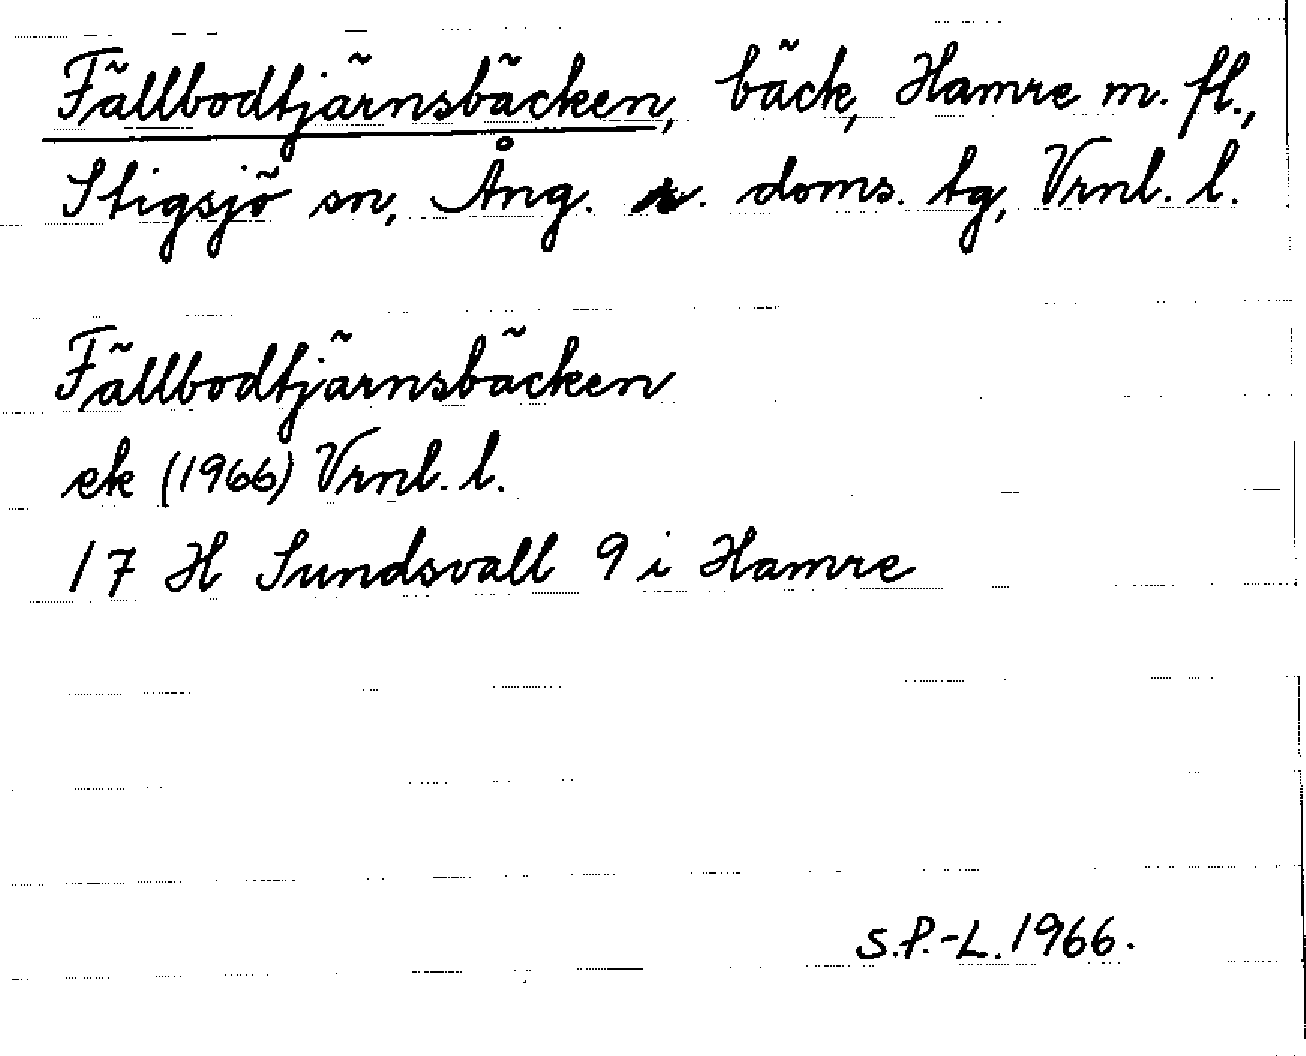 Fällbodtjärnsbäcken, bäck, Hamre m. fl.,
Stigsjö sn, Ång. s. doms. tg, Vrnl. l.
Fällbodtjärnsbäcken
ek (1966) Vrnl. l.
17 H Sundsvall 9 i Hamre
S.P.-L. 1966.